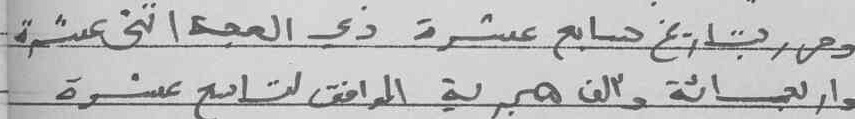 وحرر بتاريخ سابع عشرة ذي الحجة اثنى عشرة
واربعمائة والف هجرية الموافق لتاسع عشرة